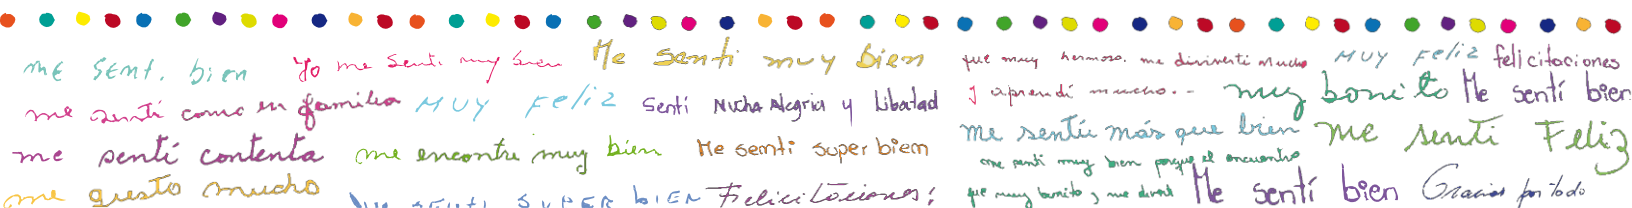 me sentí bien
Yo me sentí muy bien
Me sentí muy bien
que muy hermoso. me diviertí mucho
y aprendí mucho..
MUY FeliZ
felicitaciones
me sentí como en familia
MUY FeliZ
Sentí Mucha Alegria y Libertad
muy bonito
Me sentí bien
me sentí contenta
me encontre muy bien
Me semti super biem
me sentí más que bien
me senti Feliz
me senti muy bien porque el encuentro
fue muy bonito y me diverti
me gusto mucho
me senti SUPER bIEN
Felicitaciones!
Me sentí bien
Gracias por todo